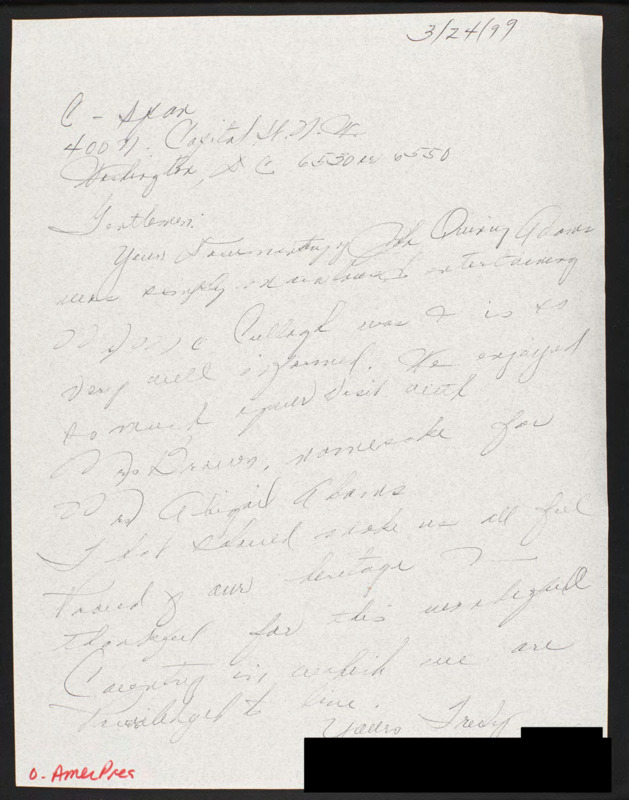 3/24/99
C-Span
400 N. Capitol St. N.W.
Washington, D C 6530 or 6550
Gentlemen:
Your of John Quincy Adams
was simply entertaining
Cullogh was & is so
very well informed. We enjoyed
so much your visit with
Mrs Brown, namesake for
Mrs Abigail Adams
That should make us all feel
Proud of our heritage &
thankful for this wonderful
Country in which we are
Privileged to live.
Yours Truly
O. AmerPres